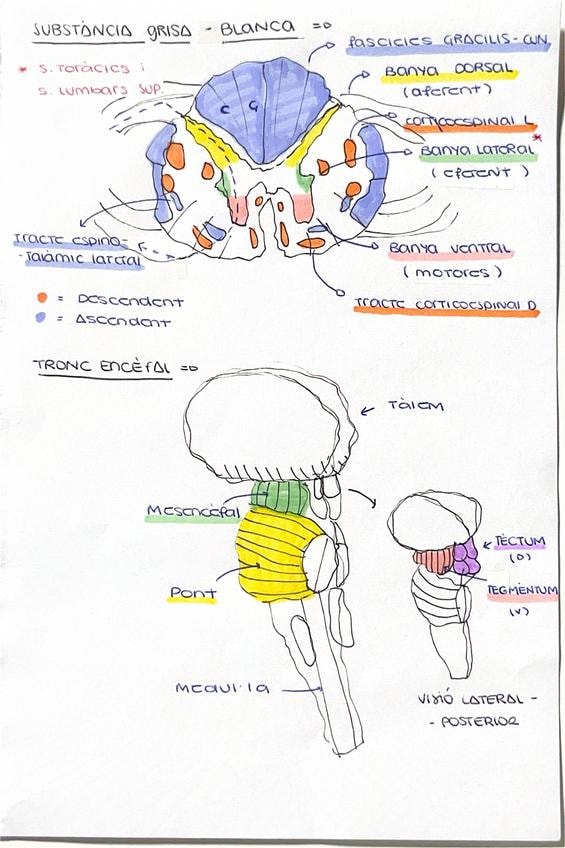 SUBSTÀNCIA GRISA - BLANCA =D
* S. TORÀCICS i
S. LUMBARS SUP.
FASCICLES GRACILIS-CUN.
BANYA DORSAL
(aferent)
CORTICOESPINAL L
BANYA LATERAL *
(eferent)
C G
TRACTE ESPINO-
-TALÀMIC LATERAL
BANYA VENTRAL
(motores)
TRACTE CORTICOESPINAL D
= Descendent
= Ascendent
TRONC ENCÈFAL =D
TÀLEM
Mesencèfal
Pont
Medul·la
TECTUM
(D)
TEGMENTUM
(V)
VISIÓ LATERAL -
- POSTERIOR